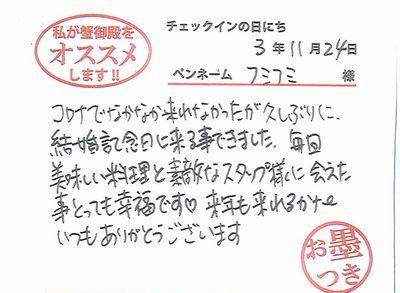 私が蟹御殿を
オススメ
します!!
チェックインの日にち
3年11月24日
ペンネーム フミフミ 様
コロナでなかなか来れなかったが久しぶりに、
結婚記念日に来る事できました。毎回
美味しい料理と素敵なスタッフ様に会えた
事とっても幸福です♡来年も来れるかなー
いつもありがとうございます
お墨
つき